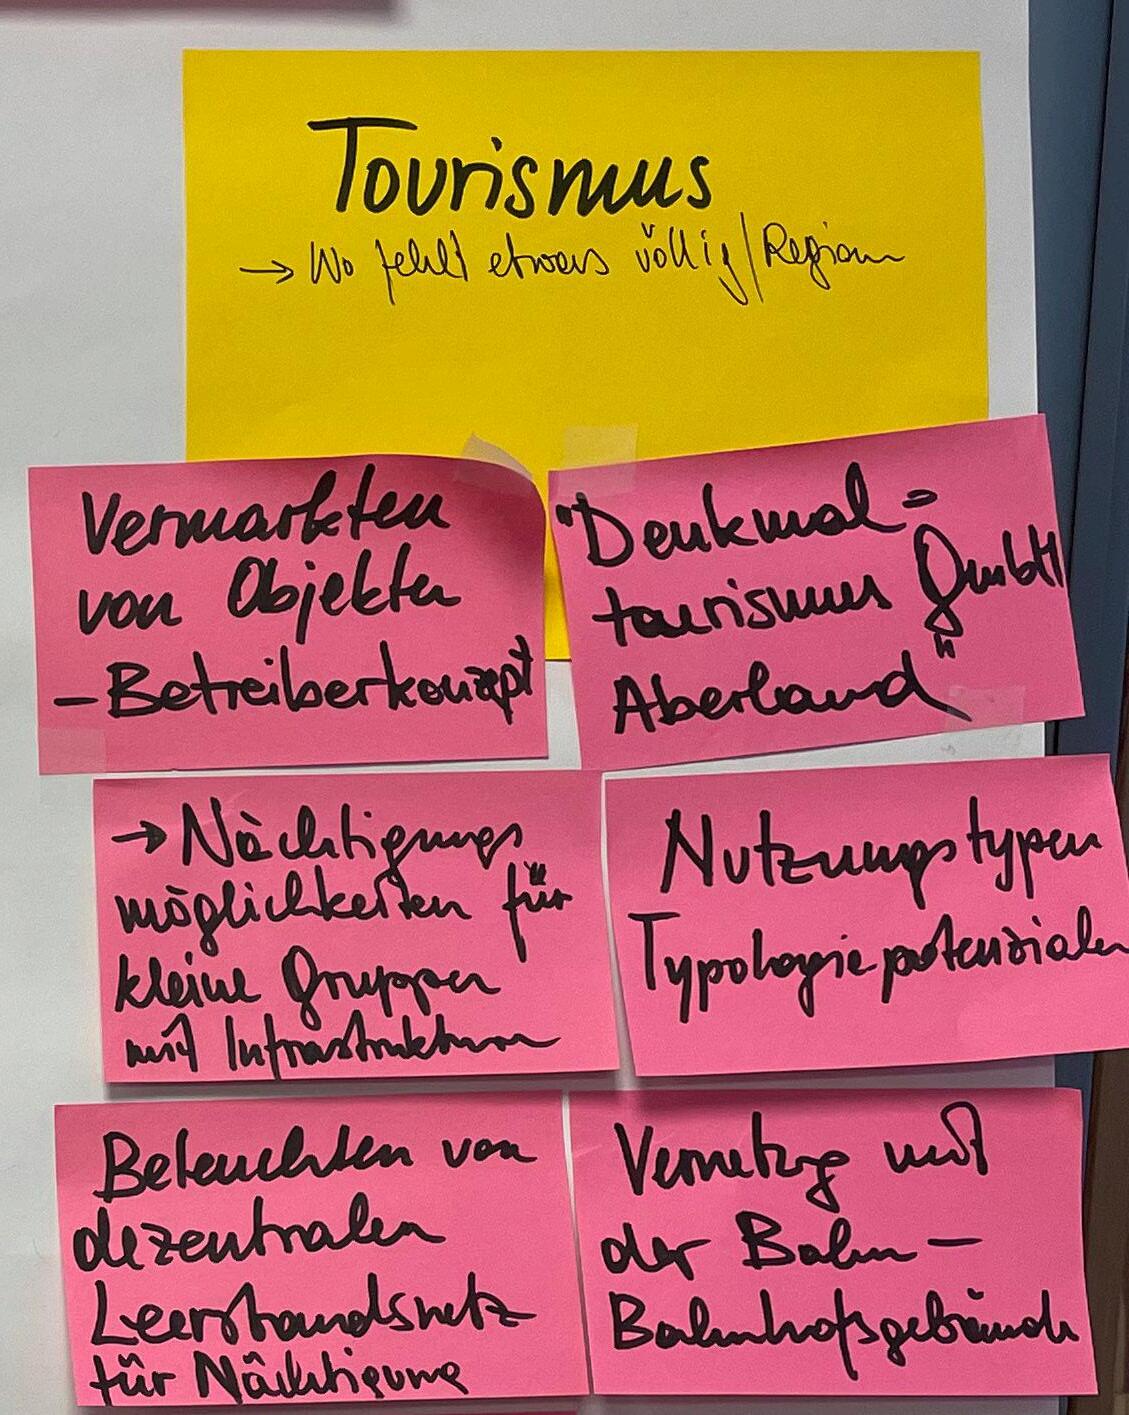 Tourismus
→ Wo fehlt etwas völlig/Region
Vermarkten
von Objekten
- Betreiberkonzept
"Denkmal=
tourismus GmbH
Aberland"
→ Nächtigungs
möglichkeiten für
kleine Gruppen
mit Infrastruktur
Nutzungstypen
Typologiepotenzialen
Beleuchten von
dezentralen
Leerstandsnetz
für Nächtigung
Vernetzg mit
der Bahn -
Bahnhofsgebäude